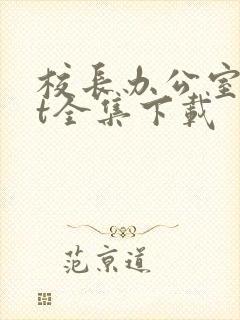 校长办公室
t全集下载
范京道